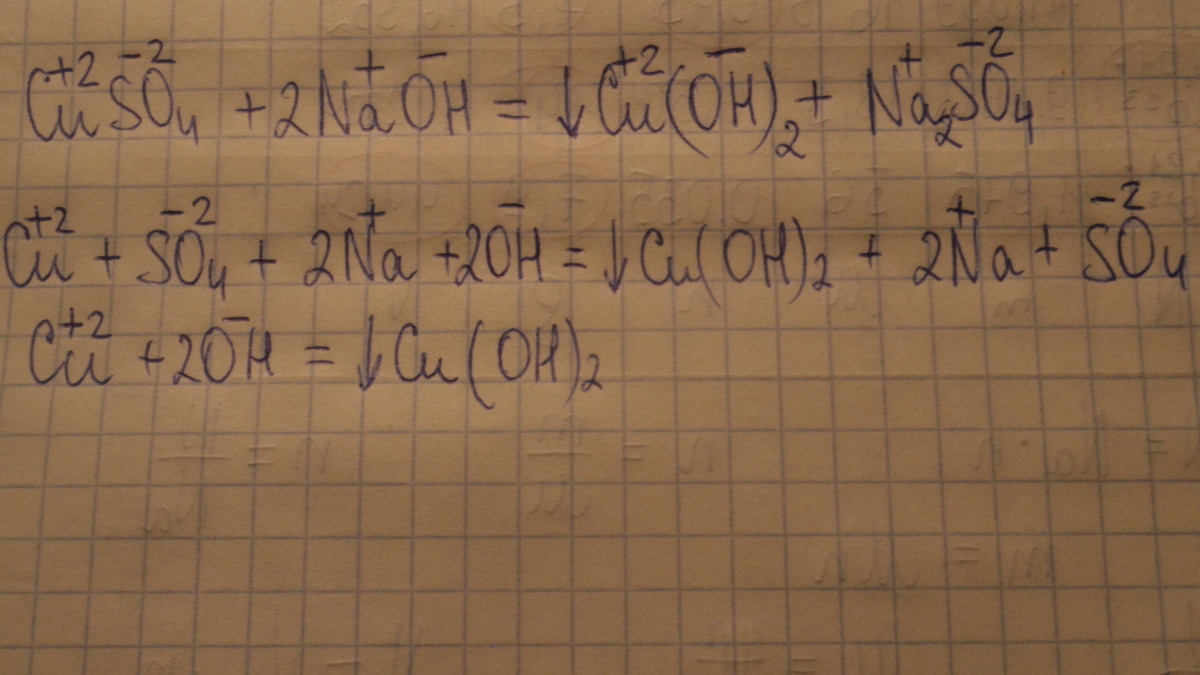 Cu⁺²SO₄⁻² + 2Na⁺OH⁻ = ↓Cu⁺²(OH⁻)₂ + Na⁺₂SO₄⁻²
Cu⁺² + SO₄⁻² + 2Na⁺ + 2OH⁻ = ↓Cu(OH)₂ + 2Na⁺ + SO₄⁻²
Cu⁺² + 2OH⁻ = ↓Cu(OH)₂